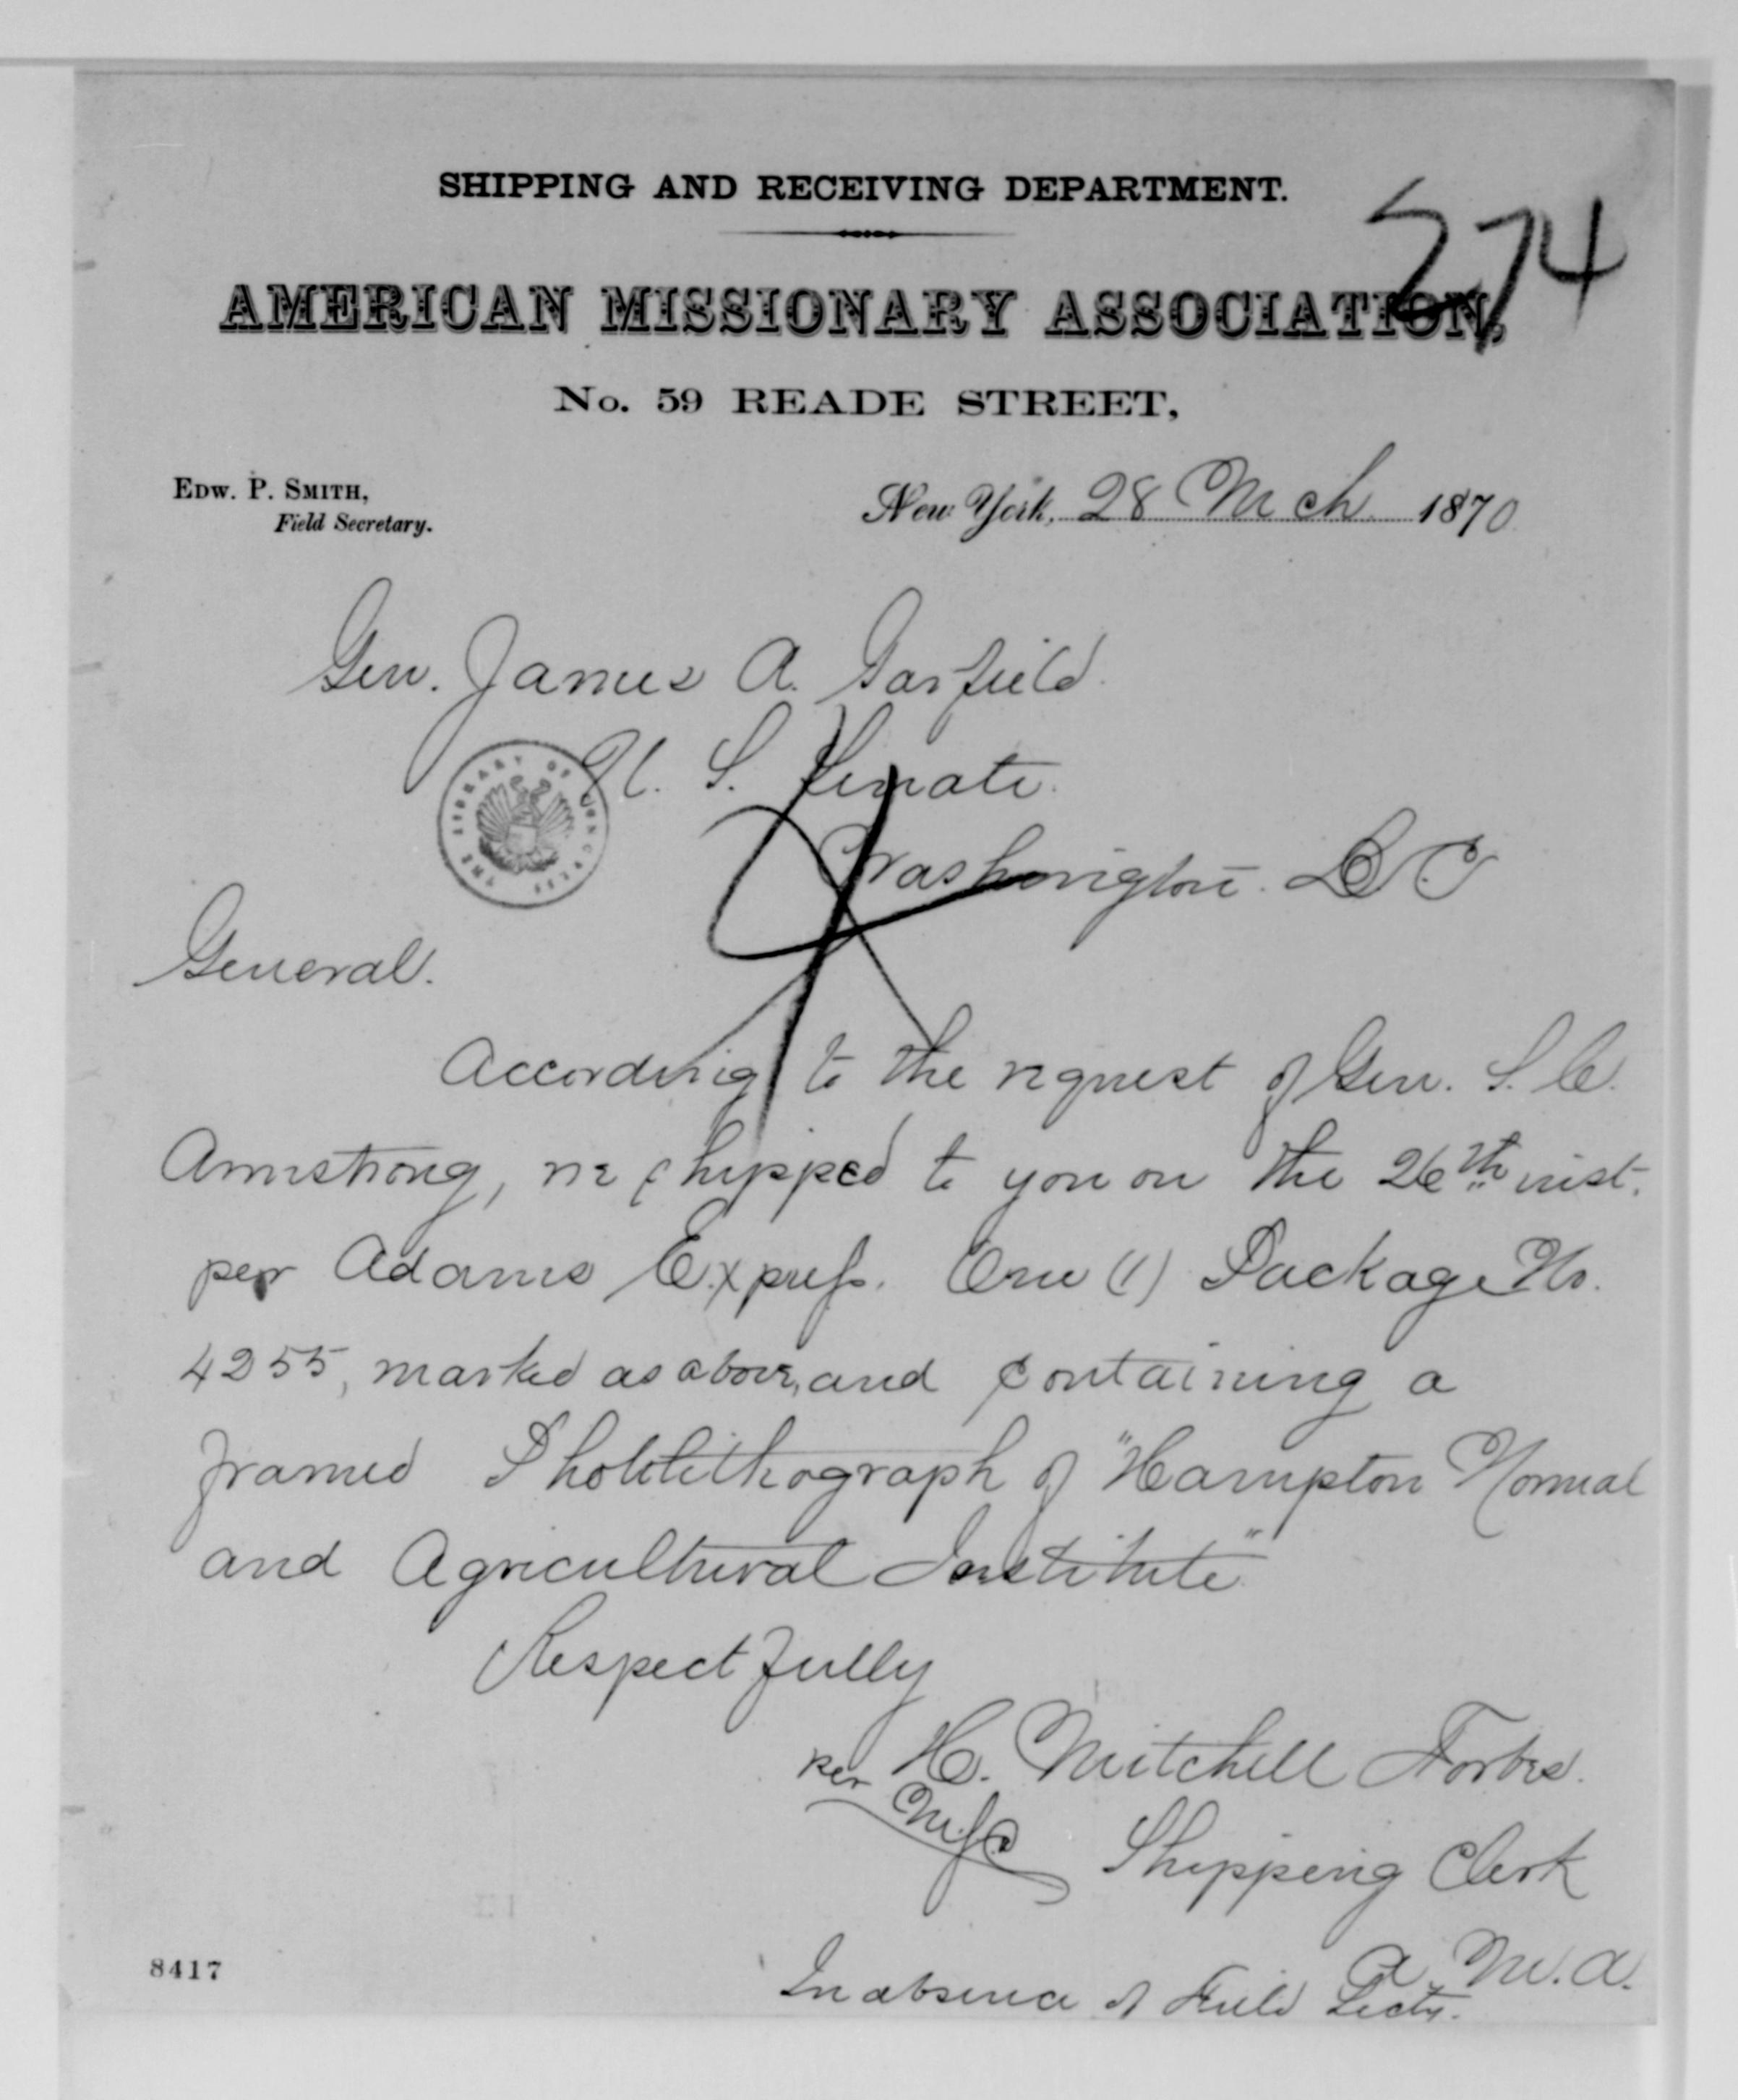 SHIPPING AND RECEIVING DEPARTMENT.
274
AMERICAN MISSIONARY ASSOCIATION,
No. 59 READE STREET,
EDW. P. SMITH,
Field Secretary.
New York, 28 Mch. 1870
Gen. James A. Garfield.
U. S. Senate.
THE LIBRARY OF CONGRESS
Washington. D. C
General.
According to the request of Gen. S. C.
Armstrong, we shipped to you on the 26th inst.
per Adams Express. One (1) Package No.
4255, marked as above, and containing a
framed Photolithograph of "Hampton Normal
and Agricultural Institute"
Respectfully
H. Mitchell Forbes.
per
Shipping Clerk
A. M. A.
In absence of Field Secty.
8417